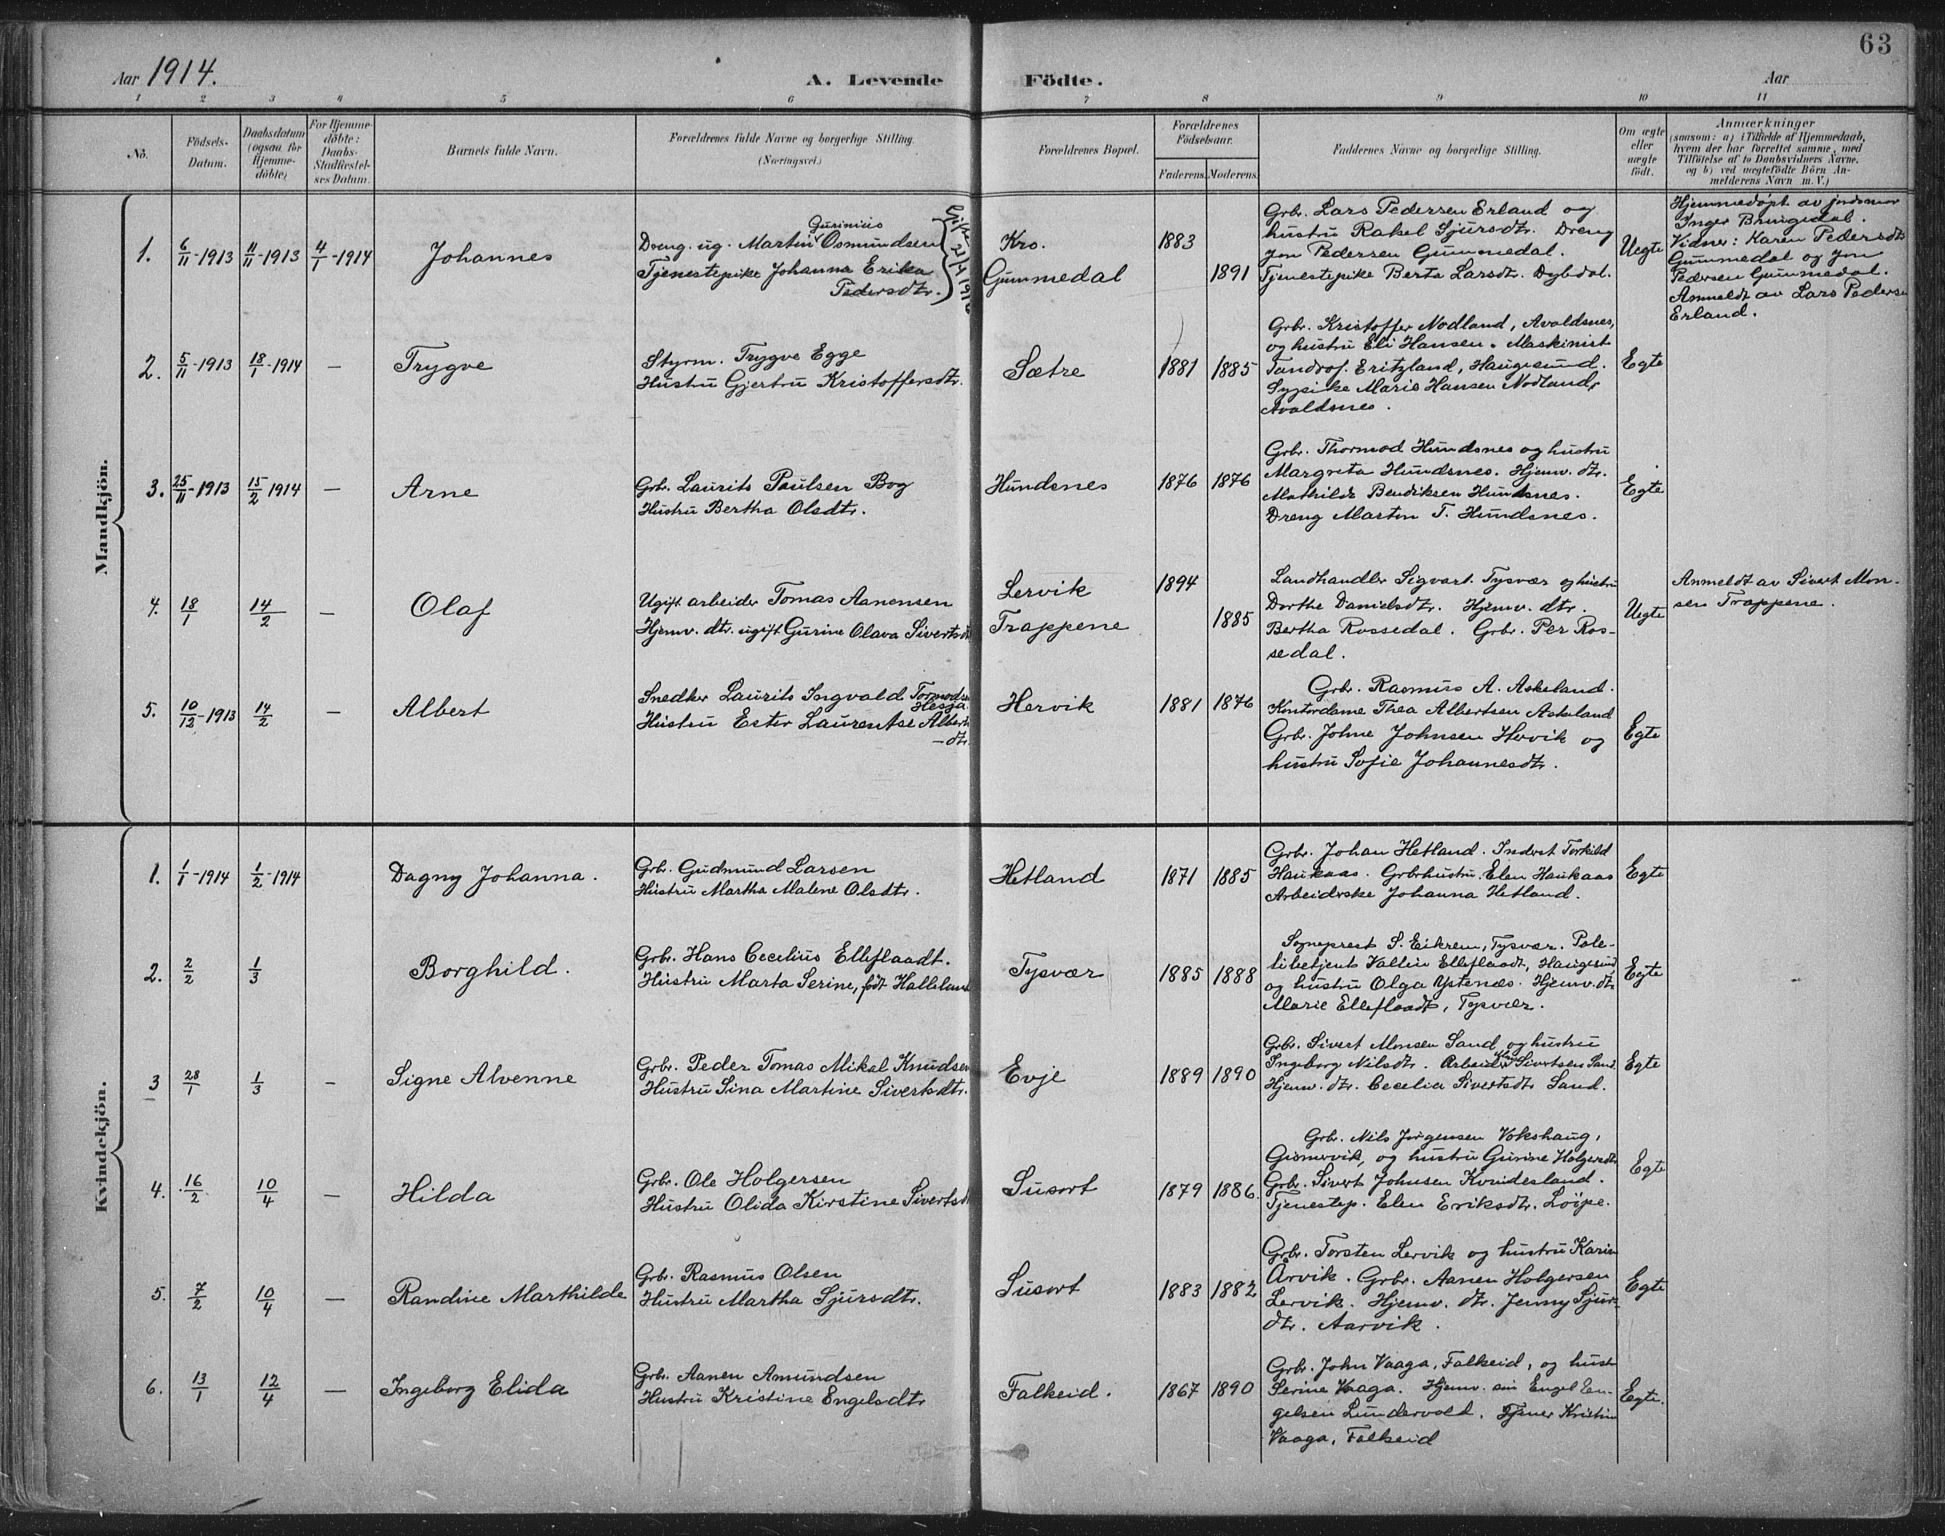 63
Aar 1914.
A. Levende Födte.
Aar
1 2 3 4 5 6 7 8 9 10 11
No.
Födsels-
Datum.
Daabsdatum
(ogsaa for
Hjemme-
döbte)
For Hjemme-
döbte:
Daabs-
Stadfæstel-
ses Datum.
Barnets fulde Navn.
Forældrenes fulde Navne og borgerlige Stilling.
(Næringsvei.)
Forældrenes Bopæl.
Forældrenes
Födselsaar.
Faderens. Moderens.
Faddernes Navne og borgerlige Stilling.
Om ægte
eller
uægte
født.
Anmærkninger
(saasom: a) i Tilfælde af Hjemmedaab,
hvem der har forrettet samme, med
Tilföielse af to Daabsvidners Navne,
og b) ved uægtefödte Börn An-
melderens Navn m. V.)
Mandkjön.
1. 6/11-1913 11/11-1913 4/1-1914 Johannes
Dreng. ug. Martin Osmundsen
Tjenestepike Johanna Erika
Pedersdtr.
Kro.
Gummedal
1883
1891
Grbr. Lars Pedersen Erland og
hustru Rakel Sjursdtr. Dreng
Jon Pedersen Gummedal.
Tjenestepike Berta Larsdtr. Dybdal.
Uegte
Hjemmedøpt av jordsmor
Inger Bringedal.
Vidner: Karen Pedersdtr
Gummedal og Jon
Pedersen Gummedal.
Anmeldt av Lars Peders
Erland.
2. 5/11-1913 18/1-1914 — Trygve
Styrm. Trygve Egge
Hustru Gjertru Kristoffersdtr.
Sætre
1881 1885
Grbr. Kristoffer Nodland, Avaldsnes,
og hustru Eli Hansen. Maskinist
Eritzland, Haugesund.
Sypike Marie Hansen Nodland,
Avaldsnes.
Egte
3. 25/11-1913 15/2-1914 — Arne
Grbr. Laurits Paulsen Bog
Hustru Bertha Olsdtr.
Hundsnes
1876 1876
Grbr. Thormod Hundsnes og hustru
Margreta Hundsnes. Hjemv. dtr.
Mathilde Bendiksen Hundsnes.
Dreng Marton T. Hundsnes.
Egte
4. 18/1 14/2 — Olaf
Ugift arbeider Tomas Aanensen
Hjemv. dtr. ugift Gurine Olava Sivertsd
Lervik
Trappene
1894
1885
Landhandler Sigvart Tysvær og hustru
Dorthe Danielsdtr. Hjemv. dtr.
Bertha Rossedal. Grbr. Per Ros-
sedal.
Uegte
Anmeldt av Sivert Mon-
sen Trappene.
5. 10/12-1913 14/2 — Albert
Snedker Laurits Ingvald Tormods
Hesja
Hustru Ester Laurentse Albert
-dtr.
Hervik
1881 1876
Grbr. Rasmus A. Askeland.
Kontordame Thea Albertsen Askeland
Grbr. Johne Johnsen Hervik og
hustru Sofie Johannesdtr.
Egte
Kvindekjön.
1. 1/1-1914 1/2-1914 Dagny Johanna.
Grbr. Gudmund Larsen
Hustru Martha Malene Olsdtr.
Hetland
1871 1885
Grbr. Johan Hetland. Inderst Torkild
Haukaas. Grbrhustru Elen Haukaas
Arbeiderske Johanna Hetland.
Egte
2. 2/2 1/3 Borghild.
Grbr. Hans Cecelius Elleflaadt.
Hustru Marta Serine, født Halleland
Tysvær
1885 1888
Sogneprest S. Eikrem, Tysvær. Pole-
tibetjent Vallin Elleflaadt, Haugesund
og hustru Olga Ystenæs. Hjemv. dtr
Marie Elleflaadt, Tysvær.
Egte
3 28/1 1/3 — Signe Alvenne
Grbr. Peder Tomas Mikal Knudsen
Hustru Sina Martine Sivertsdtr.
Evje
1889 1890
Grbr. Sivert Monsen Sand og hustru
Ingeborg Nilsdtr. Arbeider Sivertsen Sand.
Hjemv. dtr. Cecelia Sivertsdtr Sand.
Egte
4. 16/2 10/4 — Hilda
Grbr. Ole Holgersen
Hustru Olida Kirstine Sivertsd
Susort
1879 1886.
Grbr. Nils Jørgensen Vokshaug,
Gismervik, og hustru Gurine Holgersdtr
Grbr. Sivert Johnsen Kvindesland.
Tjenestep. Elen Eriksdtr. Løipe.
Egte
5. 7/2 10/4 — Randine Marthilde
Grbr. Rasmus Olsen
Hustru Martha Sjursdtr.
Susort
1883 1882
Grbr. Torsten Lervik og hustru Karin
Årvik. Grbr. Aanen Holgersen
Lervik. Hjemv. dtr. Jenny Sjurs-
dtr. Aarvik.
Egte
6. 13/1 12/4 — Ingeborg Elida
Grbr. Aanen Amundsen
Hustru Kristine Engelsdtr
Falkeid.
1867 1890
Grbr. John Vaaga, Falkeid, og hust
Serine Vaaga. Hjemv. søn Engel En-
gelsen Lundervold. Tjener Kristin
Vaaga, Falkeid
Egte.